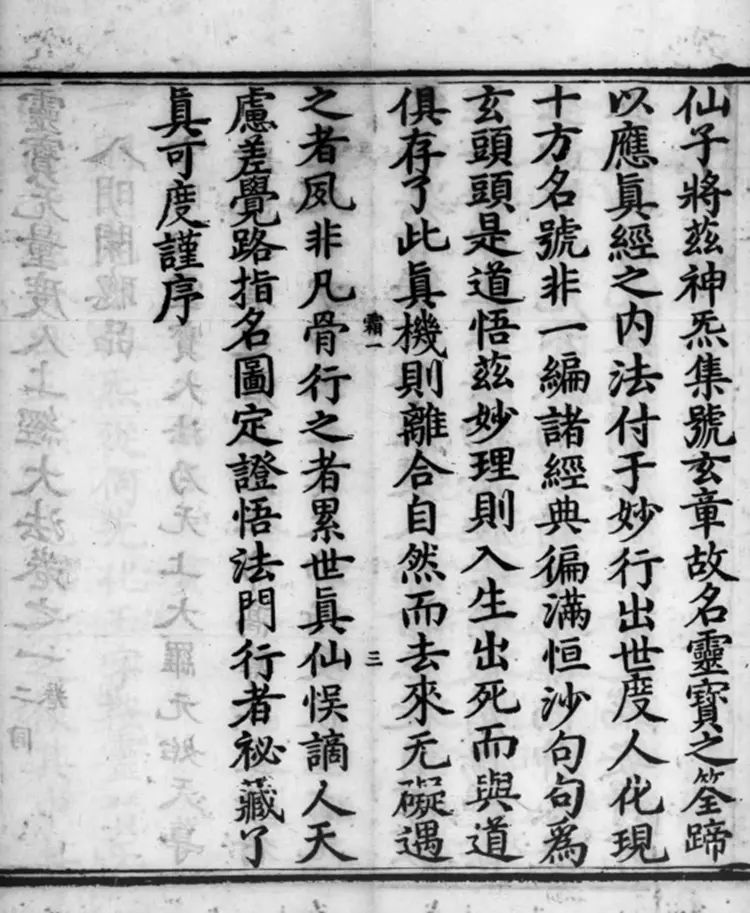 仙子將茲神炁集號玄章故名靈寶之筌蹄
以應眞經之内法付于妙行出世度人化現
十方名號非一編諸經典徧滿恒沙句句爲
玄頭頭是道悟茲妙理則入生出死而與道
俱存了此眞機則離合自然而去來无礙遇
霜一
三
之者夙非凡骨行之者累世眞仙悞謫人天
慮差覺路指名圖定證悟法門行者祕藏了
眞可度謹序
靈寶无量度人上經大法卷之一 二同卷